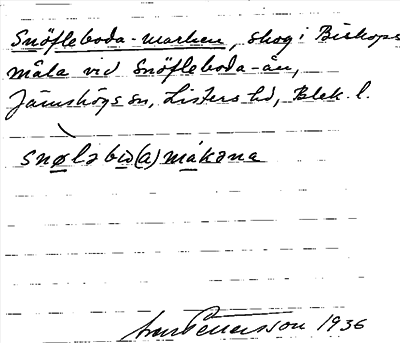 Snöfleboda-marken, skog i Biskops
måla vid Snöfleboda-ån,
Jämshögs sn, Listers hd, Blek. l.
snø̱lə bω̱(a) må̱kəna
Pettersson 1936